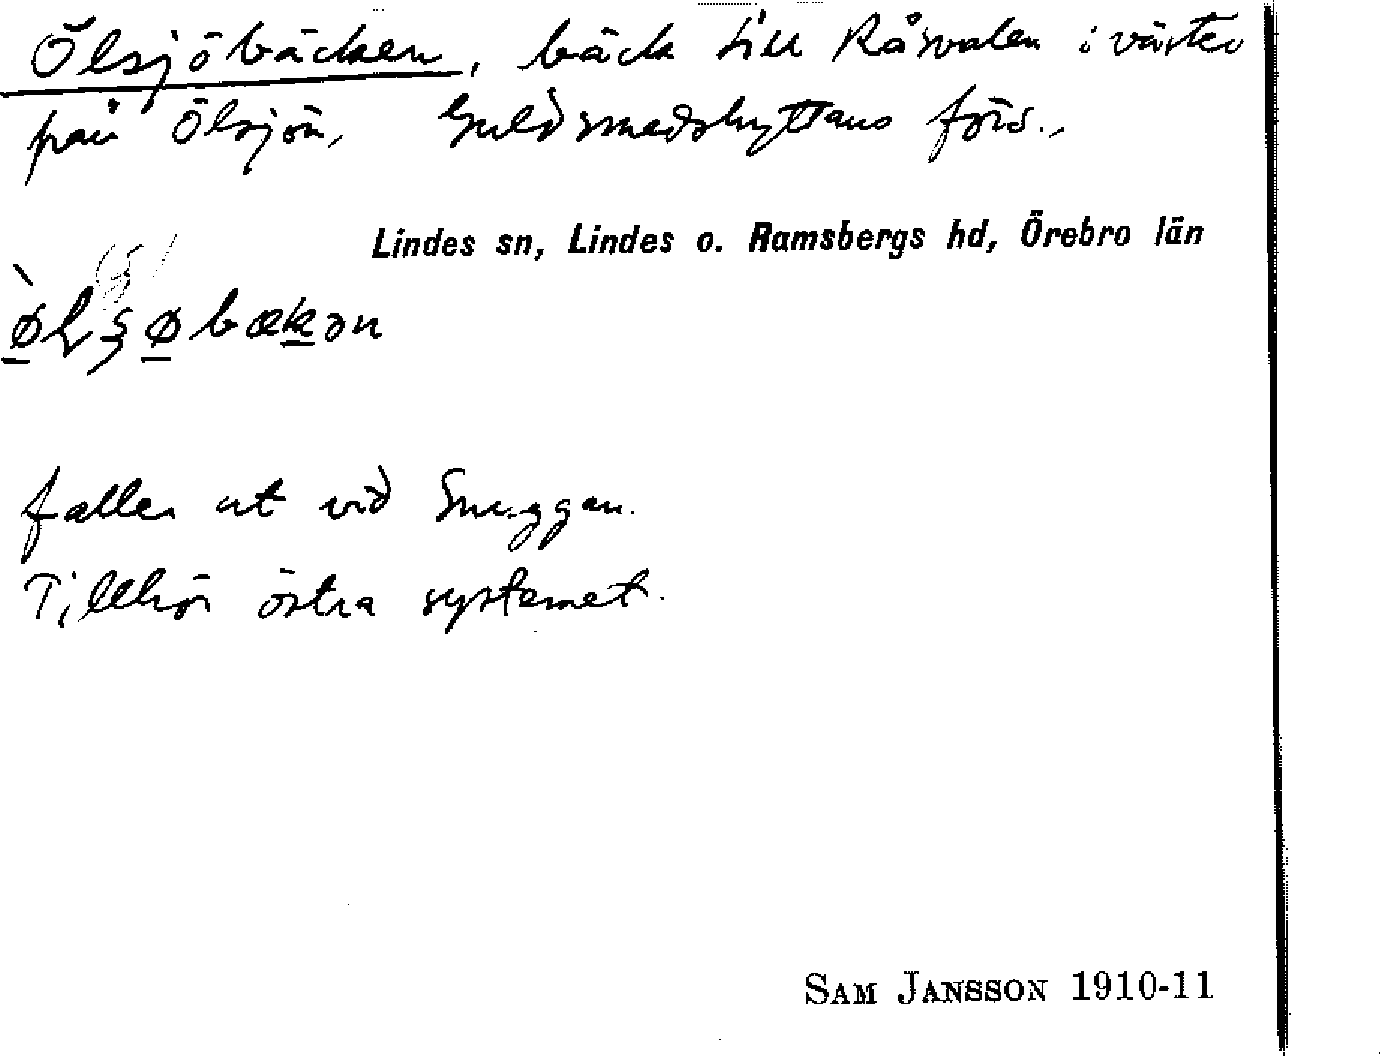 Ölsjöbäcken, bäck till Råsvalen i väster
från Ölsjön, Guldsmedshyttans förs.,
Lindes sn, Lindes o. Ramsbergs hd, Örebro län
faller ut vid Snuggan.
Tillhör östra systemet.
SAM JANSSON 1910-11